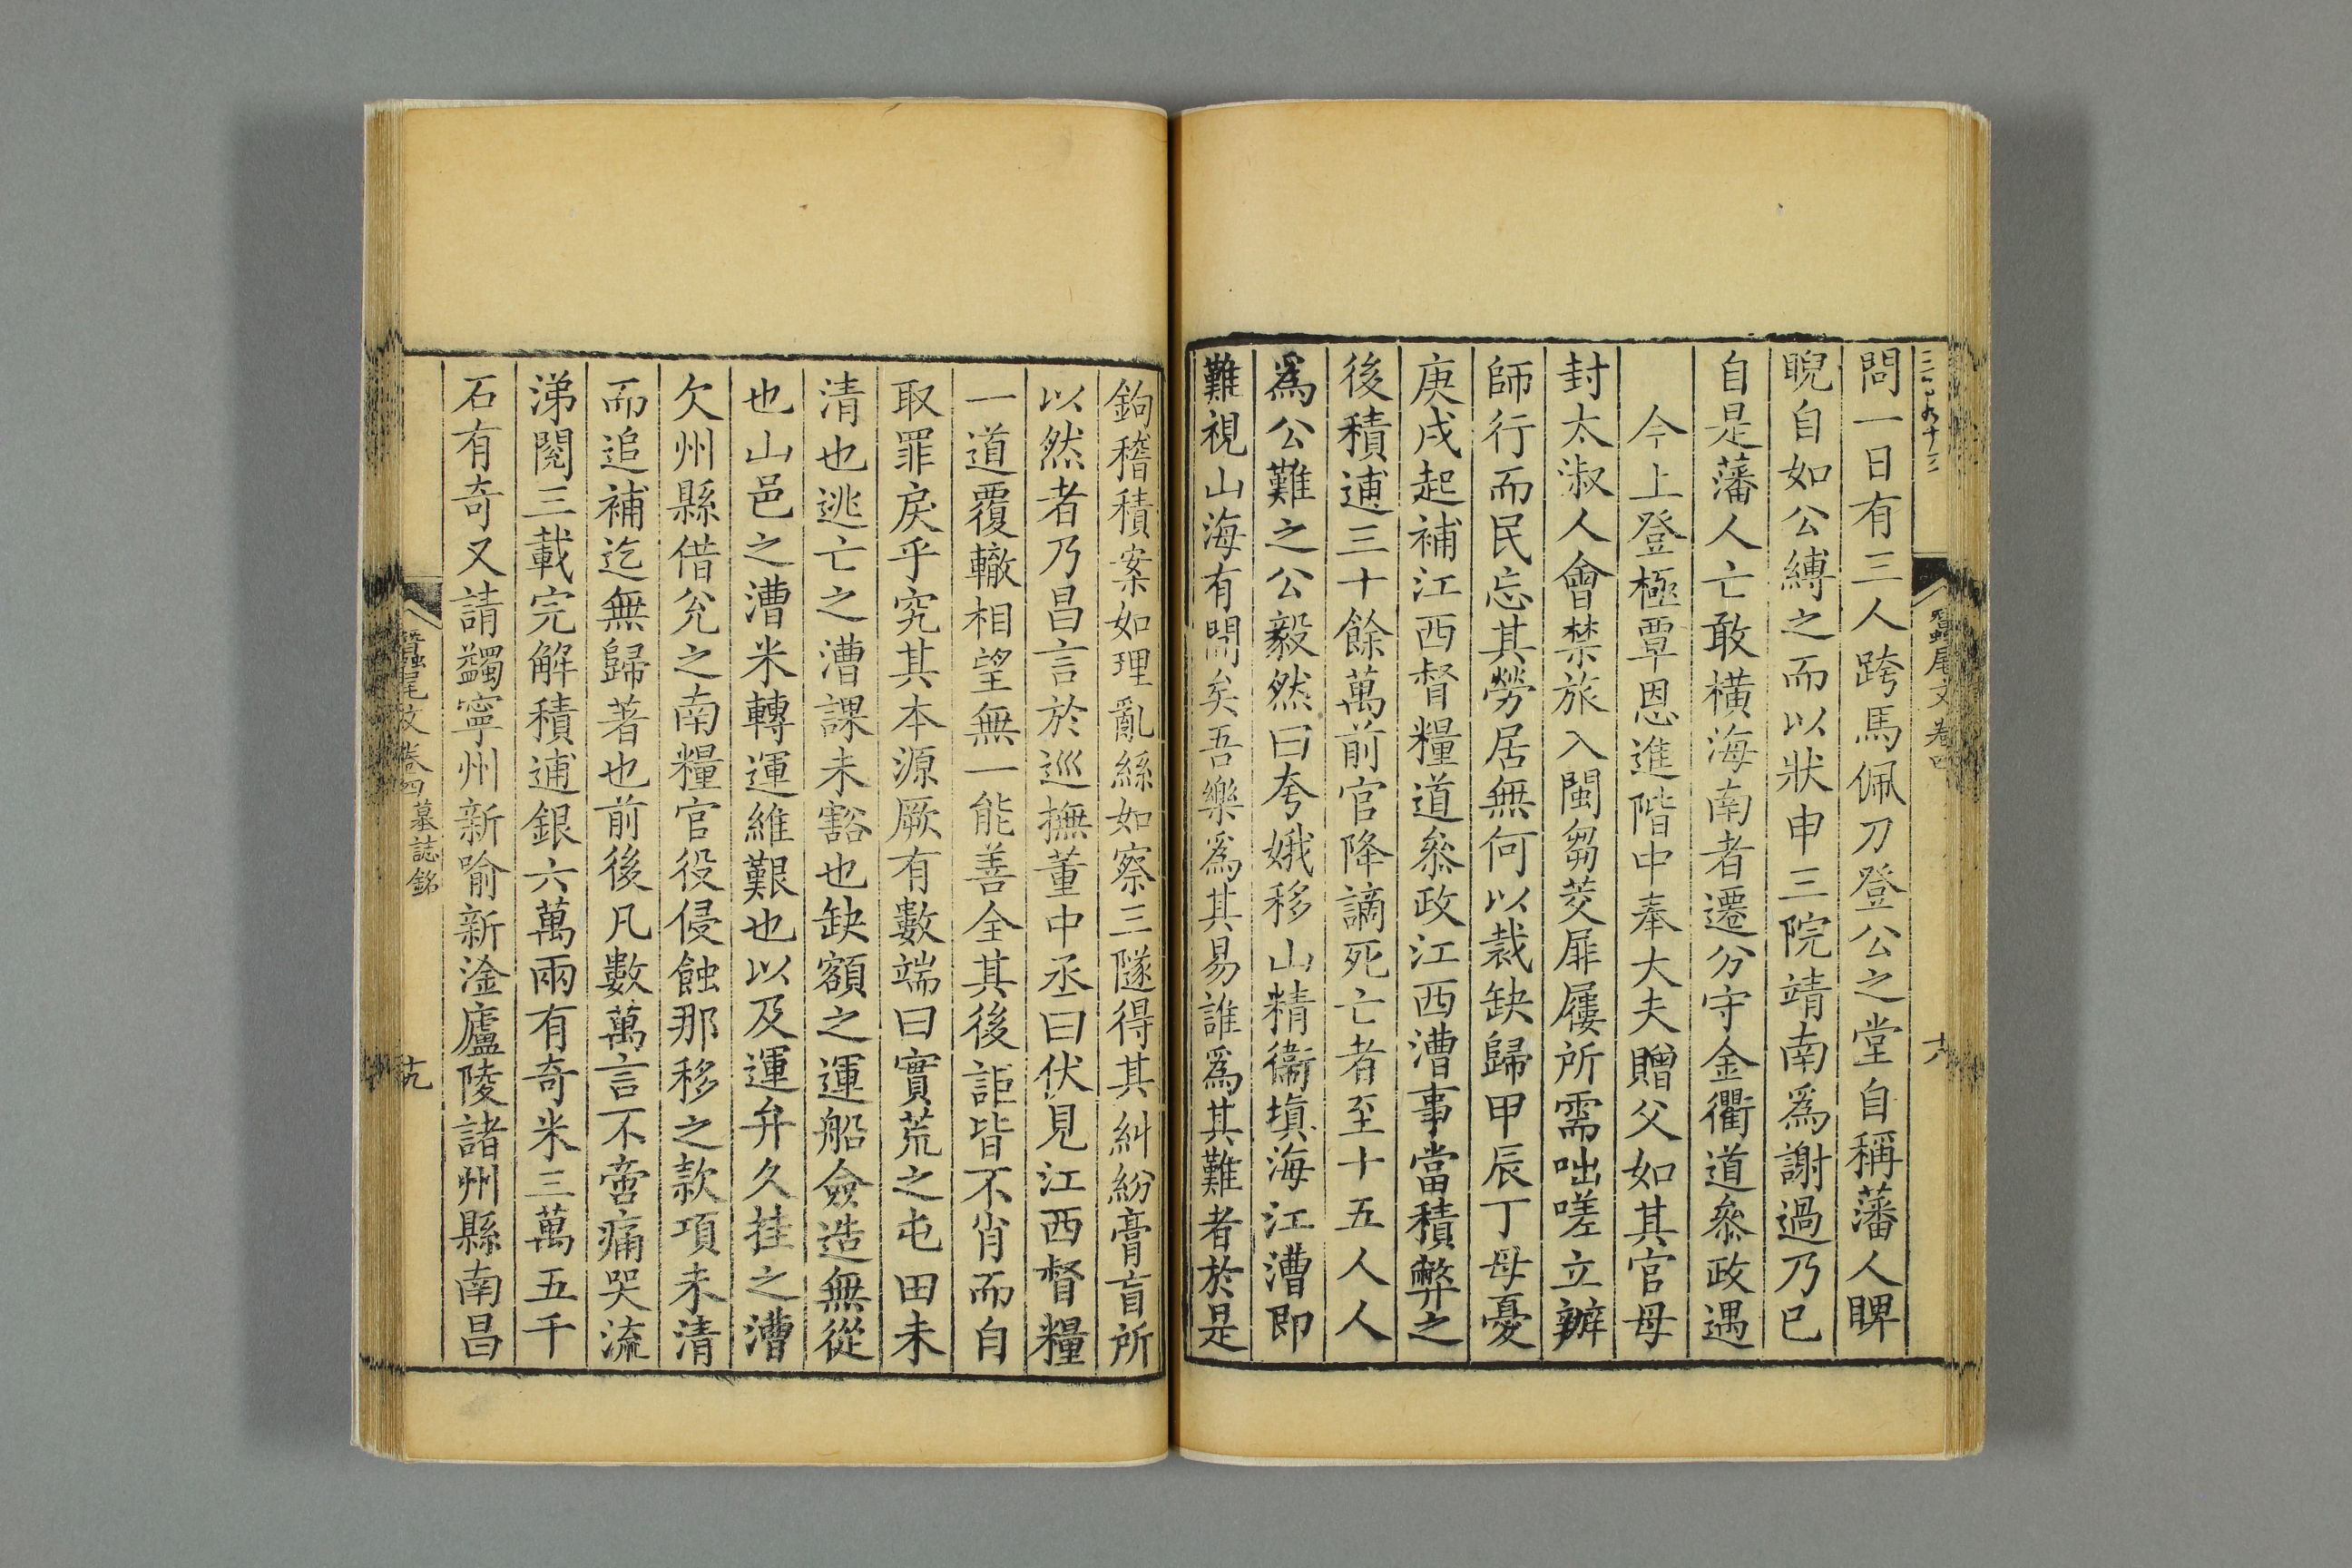 問一日有三人跨馬佩刀登公之堂自稱藩人睥
睨自如公縛之而以狀申三院靖南爲謝過乃已
自是藩人亡敢橫海南者遷分守金衢道叅政遇
今上登極覃恩進階中奉大夫贈父如其官母
封太淑人會禁旅入閩芻茭屝屨所需咄嗟立辦
師行而民忘其勞居無何以裁缺歸甲辰丁母憂
庚戌起補江西督糧道叅政江西漕事當積弊之
後積逋三十餘萬前官降謫死亡者至十五人人
爲公難之公毅然曰夸娥移山精衞塡海江漕即
難視山海有閒矣吾樂爲其易誰爲其難者於是
蠶尾文 卷四
鉤稽積案如理亂絲如察三隧得其糾紛膏肓所
以然者乃昌言於巡撫董中丞曰伏見江西督糧
一道覆轍相望無一能善全其後詎皆不肖而自
取罪戾乎究其本源厥有數端曰實荒之屯田未
清也逃亡之漕課未豁也缺額之運船僉造無從
也山邑之漕米轉運維艱也以及運弁久挂之漕
欠州縣借兌之南糧官役侵蝕那移之款項未清
而追補迄無歸著也前後凡數萬言不啻痛哭流
涕閱三載完解積逋銀六萬兩有奇米三萬五千
石有奇又請蠲寧州新喻新淦廬陵諸州縣南昌
蠶尾文 卷四 墓誌銘 十九